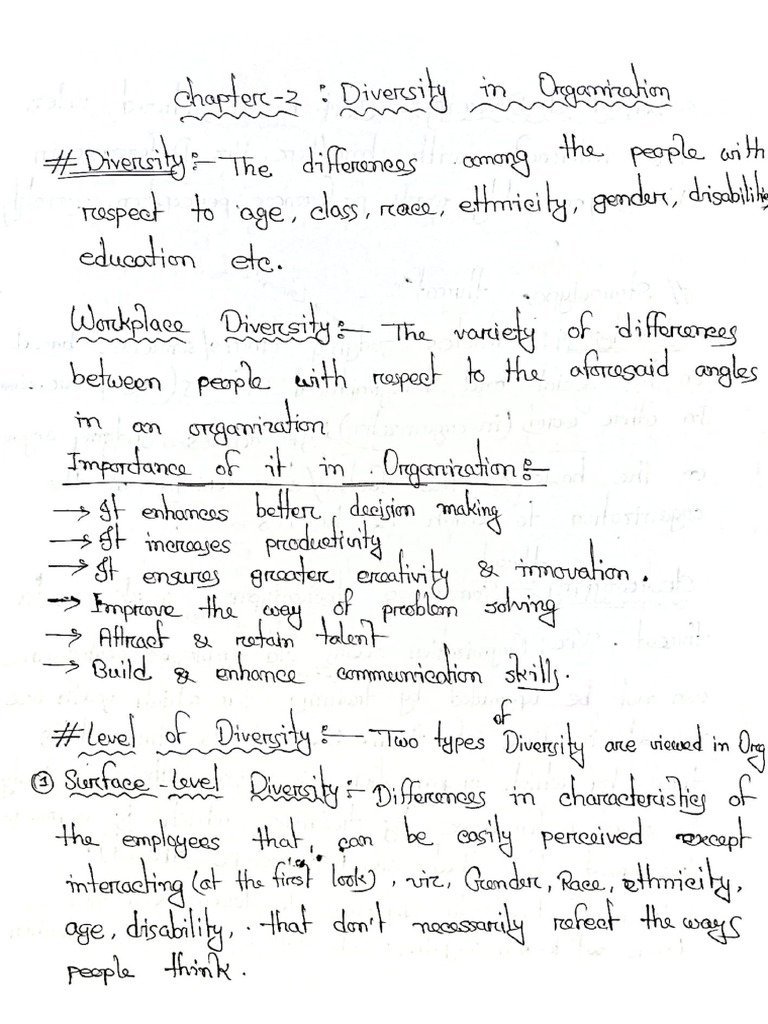 Chapter-2 : Diversity in Organization
# Diversity :- The differences among the people with
respect to age, class, race, ethnicity, gender, disabilities
education etc.
Workplace Diversity :- The variety of differences
between people with respect to the aforesaid angles
in an organization
Importance of it in Organization :-
→ It enhances better decision making
→ It increases productivity
→ It ensures greater creativity & innovation.
→ Improve the way of problem solving
→ Attract & retain talent
→ Build & enhance communication skills.
# Level of Diversity :- Two types of Diversity are viewed in Org
① Surface-Level Diversity :- Differences in characteristics of
the employees that, can be easily perceived except
interacting (at the first look), viz, Gender, Race, ethnicity,
age, disability, that don't necessarily refect the ways
people think.